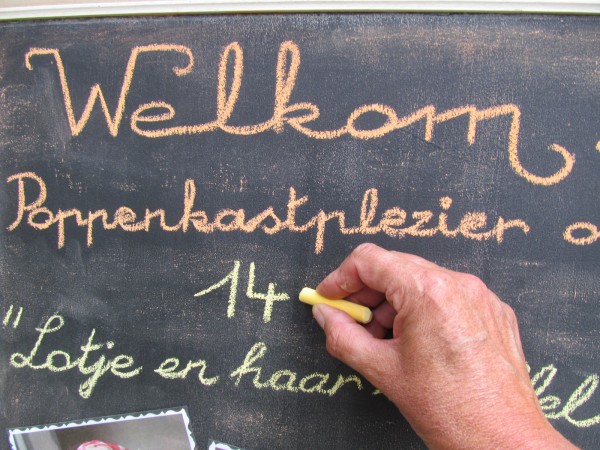 Welkom
Poppenkastplezier
14
"Lotje en haar